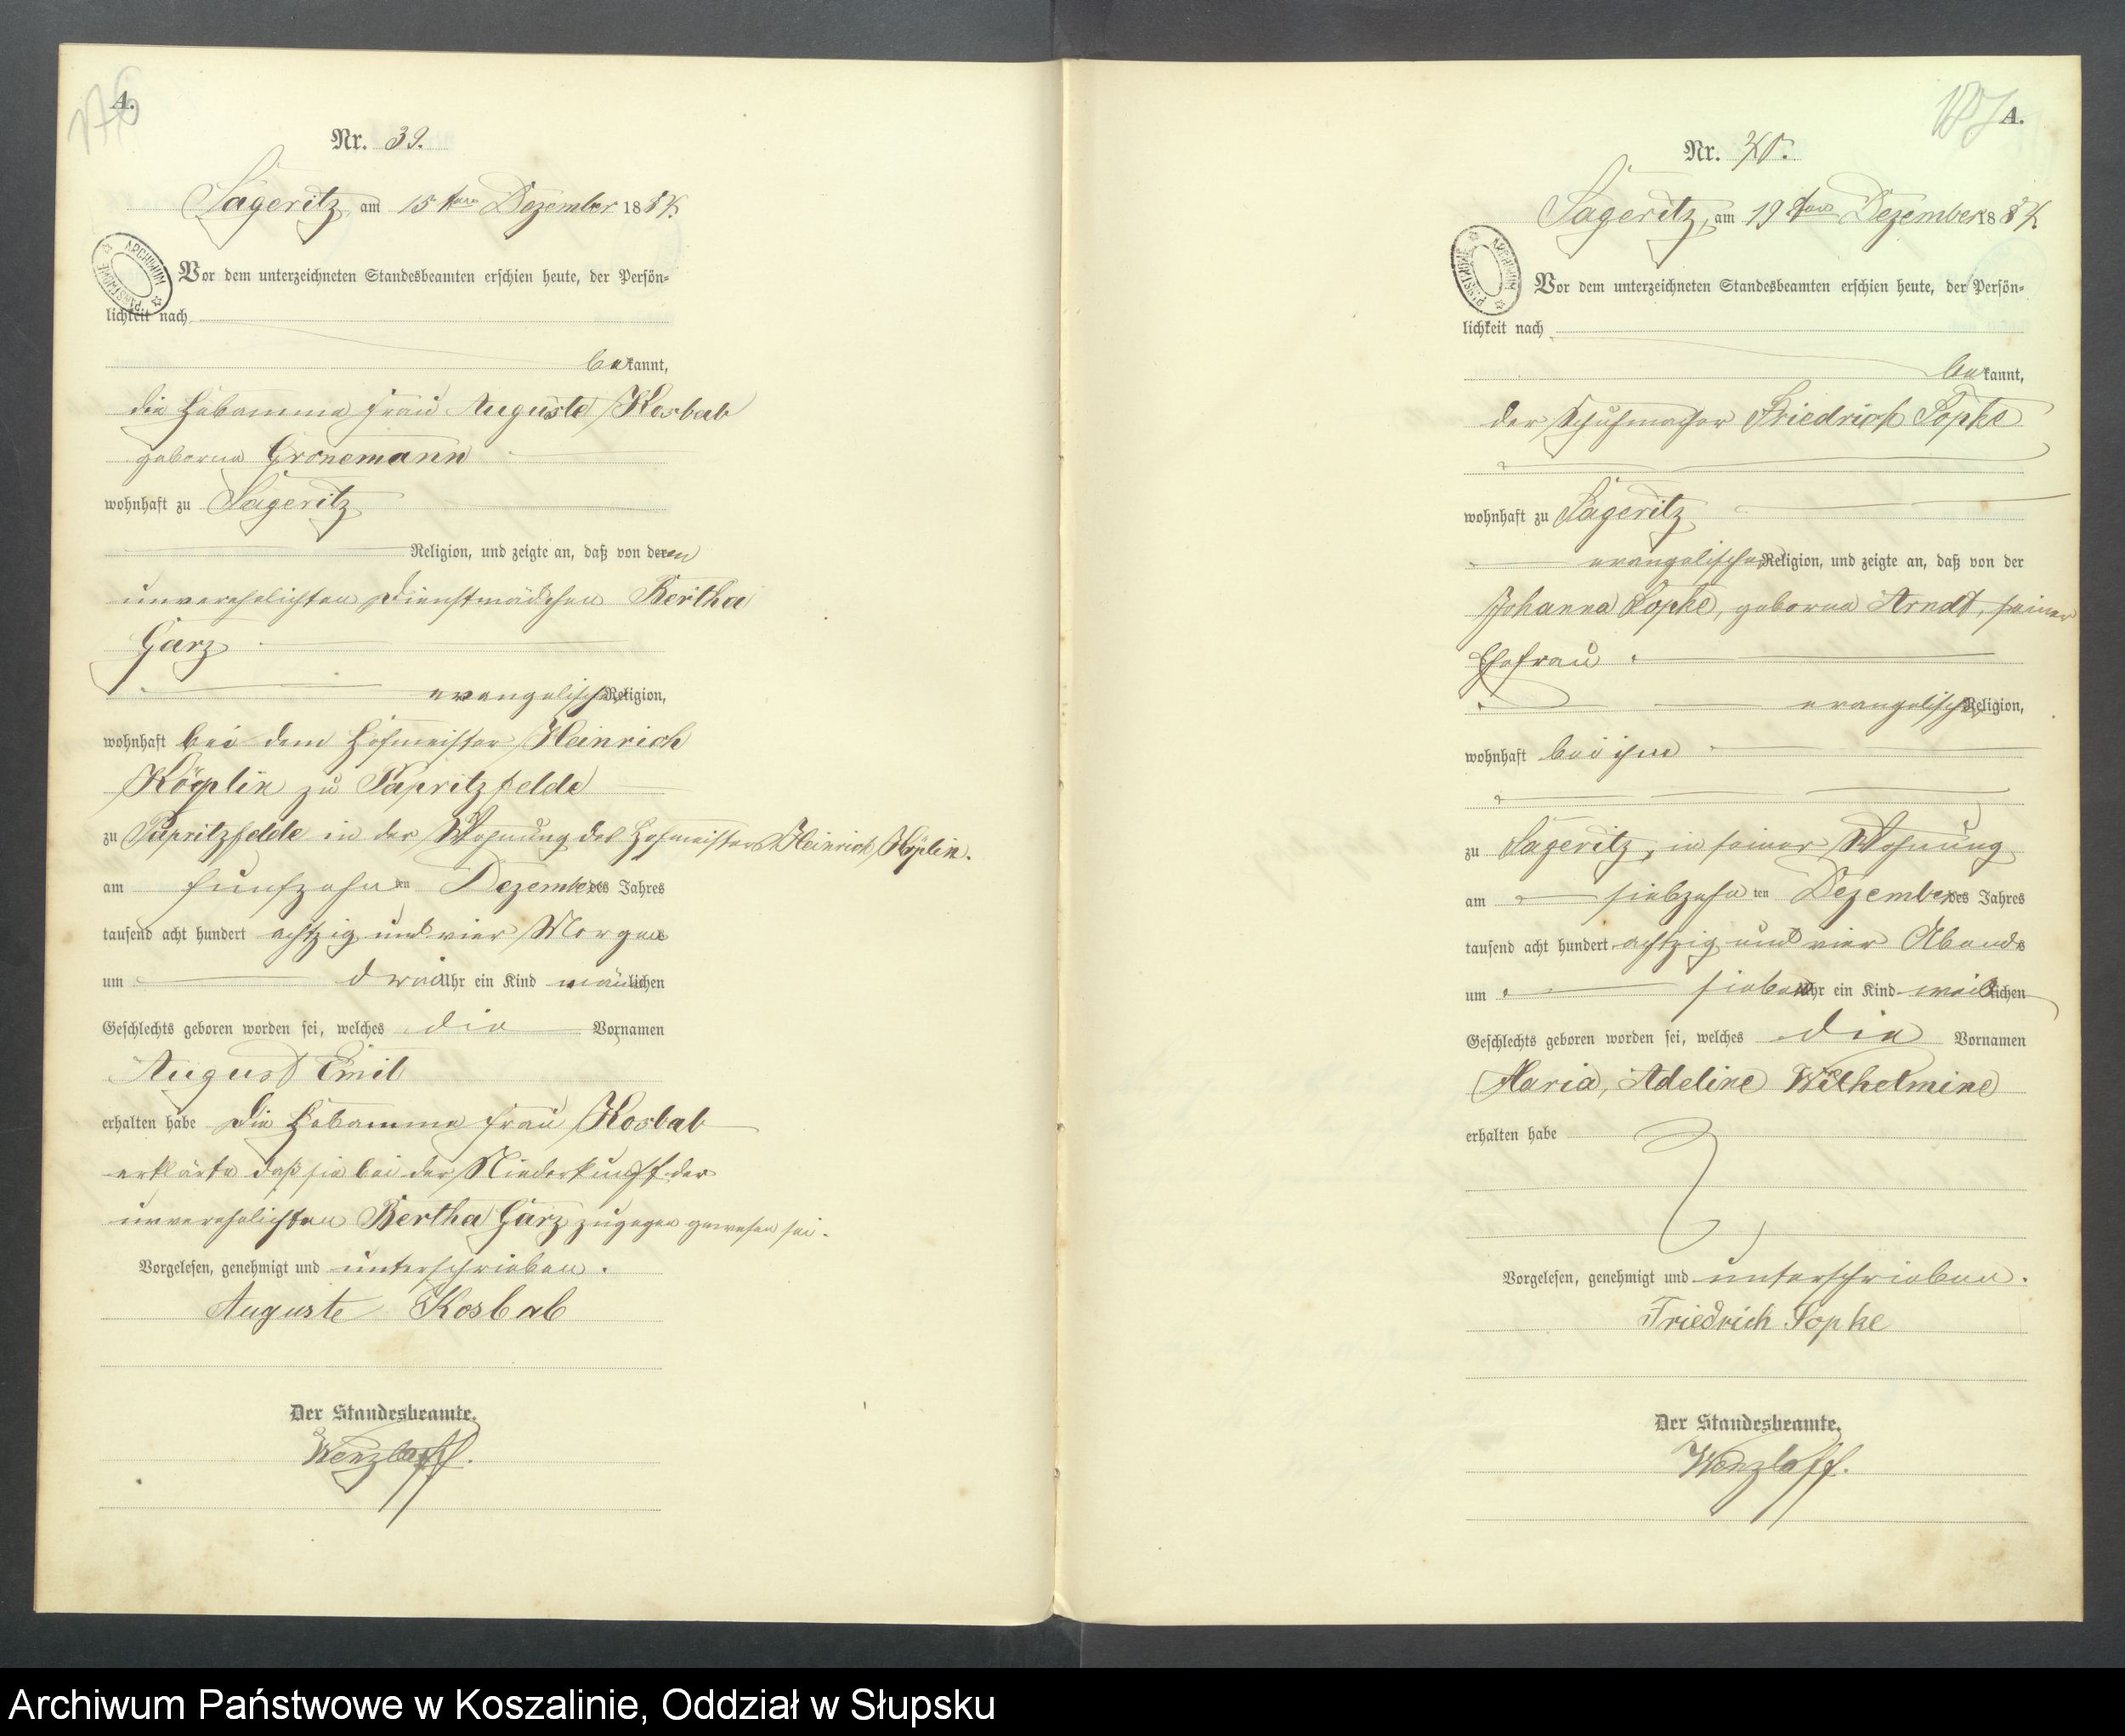 A.
Nr. 39.
Sageritz, am 15ten Dezember 1884.
Vor dem unterzeichneten Standesbeamten erschien heute, der Persön-
lichkeit nach
bekannt,
die Hebamme Frau Auguste Kosbab
geborne Gronemann
wohnhaft zu Sageritz
Religion, und zeigte an, daß von der
unverehelichten Dienstmädchen Bertha
Garz
evangelischer Religion,
wohnhaft bei dem Hofmeister Heinrich
Köplin zu Papritzfelde
zu Papritzfelde in der Wohnung des Hofmeisters Heinrich Köplin.
am fünfzehnten Dezember des Jahres
tausend acht hundert achtzig und vier Morgens
um drei Uhr ein Kind männlichen
Geschlechts geboren worden sei, welches die Vornamen
August Emil
erhalten habe Die Hebamme Frau Kosbab
erklärte daß sie bei der Niederkunft der
unverehelichten Bertha Garz zugegen gewesen sei.
Vorgelesen, genehmigt und unterschrieben.
Auguste Kosbab
Der Standesbeamte.
Wenzlaff.
A.
Nr. 40.
Sageritz, am 19ten Dezember 1884
Vor dem unterzeichneten Standesbeamten erschien heute, der Persön-
lichkeit nach
bekannt,
der Schuhmacher Friedrich Sopke
wohnhaft zu Sageritz
evangelischer Religion, und zeigte an, daß von der
Johanna Sopke, geborne Arndt, seiner
Ehefrau
evangelischer Religion,
wohnhaft bei ihm
zu Sageritz, in seiner Wohnung
am siebzehnten Dezember des Jahres
tausend acht hundert achtzig und vier Abends
um sieben Uhr ein Kind weiblichen
Geschlechts geboren worden sei, welches die Vornamen
Maria, Adeline Wilhelmine
erhalten habe
Vorgelesen, genehmigt und unterschrieben.
Friedrich Sopke
Der Standesbeamte.
Wenzlaff.
Archiwum Państwowe w Koszalinie, Oddział w Słupsku